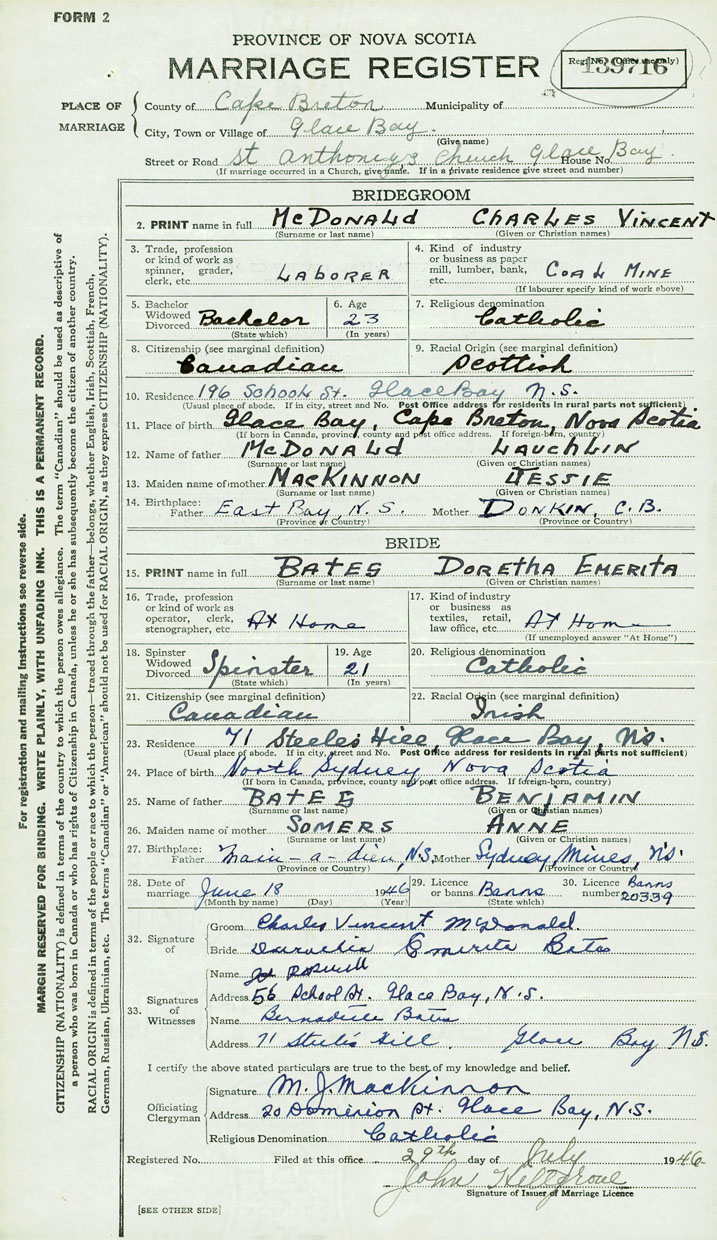 FORM 2
PROVINCE OF NOVA SCOTIA
MARRIAGE REGISTER
Reg. No. (Office use only)
139716
PLACE OF MARRIAGE
County of Cape Breton Municipality of
City, Town or Village of Glace Bay.
(Give name)
Street or Road St Anthony's Church Glace Bay. House No.
(If marriage occurred in a Church, give name. If in a private residence give street and number)
BRIDEGROOM
2. PRINT name in full McDONALD CHARLES VINCENT
(Surname or last name) (Given or Christian names)
3. Trade, profession or kind of work as spinner, grader, clerk, etc. LABORER
4. Kind of industry or business as paper mill, lumber, bank, etc. COAL MINE
(If labourer specify kind of work above)
5. Bachelor Widowed Divorced Bachelor
(State which)
6. Age 23
(In years)
7. Religious denomination Catholic
8. Citizenship (see marginal definition) Canadian
9. Racial Origin (see marginal definition) Scottish
10. Residence 196 School St. Glace Bay N.S.
(Usual place of abode. If in city, street and No. Post Office address for residents in rural parts not sufficient)
11. Place of birth Glace Bay, Cape Breton, Nova Scotia
(If born in Canada, province, county and post office address. If foreign-born, country)
12. Name of father McDONALD LAUCHLIN
(Surname or last name) (Given or Christian names)
13. Maiden name of mother MACKINNON JESSIE
(Surname or last name) (Given or Christian names)
14. Birthplace: Father East Bay, N.S. Mother DONKIN, C.B.
(Province or Country) (Province or Country)
BRIDE
15. PRINT name in full BATES DORETHA EMERITA
(Surname or last name) (Given or Christian names)
16. Trade, profession or kind of work as operator, clerk, stenographer, etc. At Home
17. Kind of industry or business as textiles, retail, law office, etc. At Home
(If unemployed answer "At Home")
18. Spinster Widowed Divorced Spinster
(State which)
19. Age 21
(In years)
20. Religious denomination Catholic
21. Citizenship (see marginal definition) Canadian
22. Racial Origin (see marginal definition) Irish
23. Residence 71 Steeles Hill, Glace Bay, N.S.
(Usual place of abode. If in city, street and No. Post Office address for residents in rural parts not sufficient)
24. Place of birth North Sydney, Nova Scotia
(If born in Canada, province, county and post office address. If foreign-born, country)
25. Name of father BATES BENJAMIN
(Surname or last name) (Given or Christian names)
26. Maiden name of mother SOMERS ANNE
(Surname or last name) (Given or Christian names)
27. Birthplace: Father Main-a-dieu, N.S. Mother Sydney Mines, N.S.
(Province or Country) (Province or Country)
28. Date of marriage June 18 1946
(Month by name) (Day) (Year)
29. Licence or banns Banns
(State which)
30. Licence number Banns 20339
32. Signature of
Groom Charles Vincent McDonald.
Bride Emerita Bates
33. Signatures of Witnesses
Name
Address 56 School St. Glace Bay, N.S.
Name Bernadette Bates
Address 71 Steele's Hill. Glace Bay N.S.
I certify the above stated particulars are true to the best of my knowledge and belief.
Officiating Clergyman
Signature M. J. MacKinnon
Address 20 Dominion St. Glace Bay, N.S.
Religious Denomination Catholic
Registered No. Filed at this office 29th day of July 1946
John
Signature of Issuer of Marriage Licence
[SEE OTHER SIDE]
For registration and mailing instructions see reverse side.
MARGIN RESERVED FOR BINDING. WRITE PLAINLY, WITH UNFADING INK. THIS IS A PERMANENT RECORD.
CITIZENSHIP (NATIONALITY) is defined in terms of the country to which the person owes allegiance. The term "Canadian" should be used as descriptive of
a person who was born in Canada or who has rights of Citizenship in Canada, unless he or she has subsequently become the citizen of another country.
RACIAL ORIGIN is defined in terms of the people or race to which the person—traced through the father—belongs, whether English, Irish, Scottish, French,
German, Russian, Ukrainian, etc. The terms "Canadian" or "American" should not be used for RACIAL ORIGIN, as they express CITIZENSHIP (NATIONALITY).